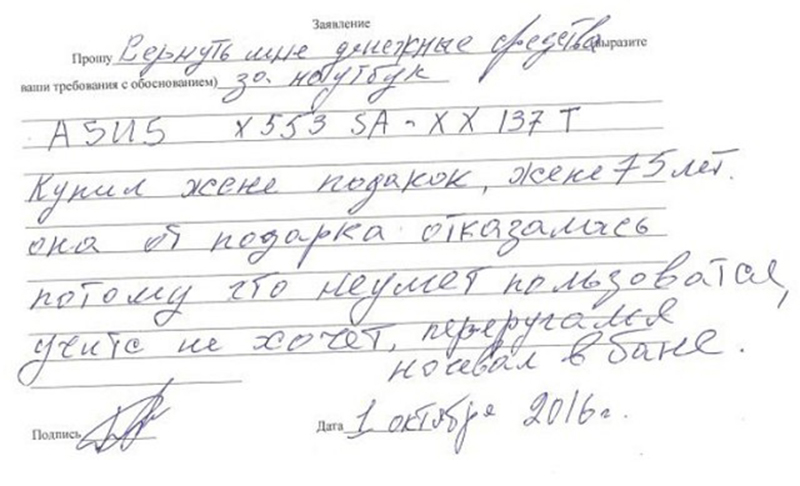 Заявление
Прошу Вернуть мне денежные средства (выразите
ваши требования с обоснованием) за ноутбук
ASUS X553 SA-XX 137 T
Купил жене подакок, жене 75 лет.
она от подарка отказалась
потому что неумет пользоватся,
учитс не хочет, переругался
ночевал в бане.
Подпись
Дата 1 октября 2016 г.